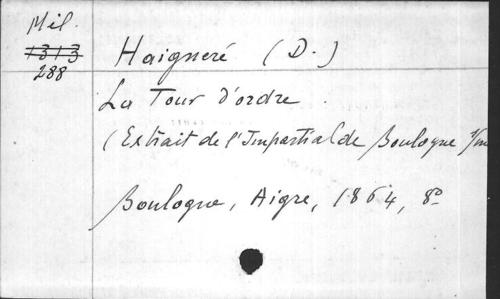 Mil.
1313
288
Haigneré (D.)
La Tour d'ordre.
(Extrait de l'Impartial de Boulogne s/m
Boulogne, Aigre, 1864, 8º